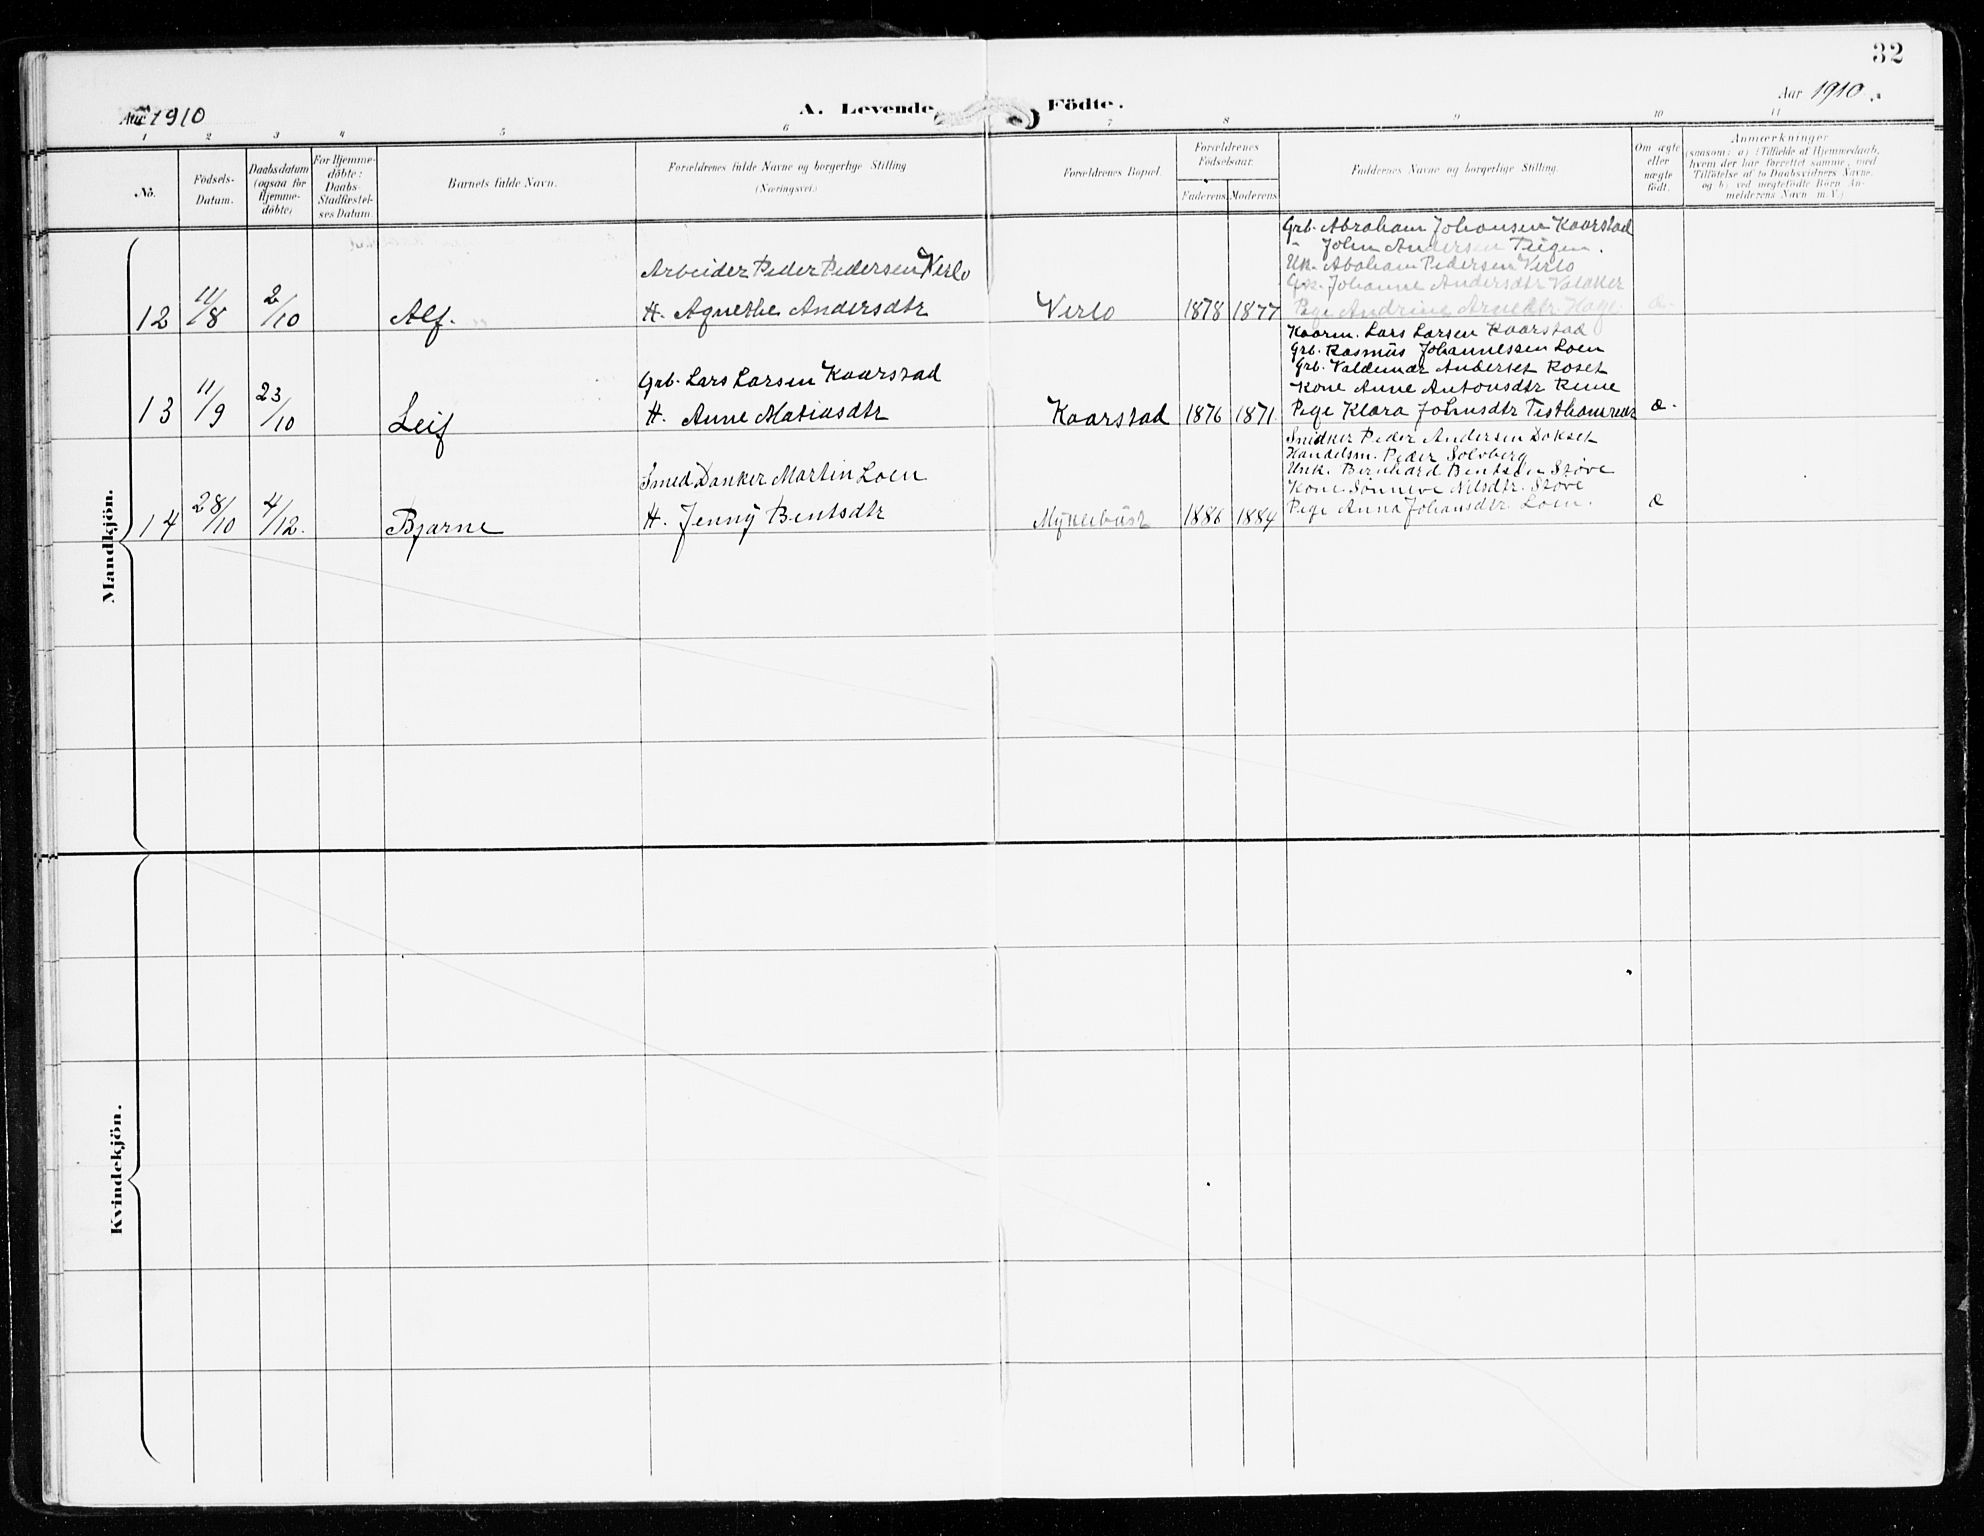 32
Aar 1910
A. Levende Födte.
Aar 1910.
1 2 3 4 5 6 7 8 9 10 11
No.
Födsels-
Datum.
Daabsdatum
(ogsaa for
Hjemme-
döbte)
For Hjemme-
döbte:
Daabs-
Stadfæstel-
ses Datum.
Barnets fulde Navn.
Forældrenes fulde Navne og borgerlige Stilling
(Næringsvei.)
Forældrenes Bopæl.
Forældrenes
Födselsaar.
Faderens Moderens
Faddernes Navne og borgerlige Stilling.
Om ægte
eller
uægte
födt.
Anmærkninger
(saasom: a) i Tilfælde af Hjemmedaab,
hvem der har forrettet samme, med
Tilföielse af to Daabsvidners Navne,
og b) ved uægtefödte Börn An-
melderens Navn m.V.)
Mandkjön.
12 11/8 2/10 Alf.
Arbeider Peder Pedersen Verlo
H. Agnethe Andersdtr
Verlo 1878 1877
Grb. Abraham Johansen Kaarstad
" John Andersen Teigen.
Uk. Aboham Pedersen Verlo
Gk. Johanne Andersdtr Valaker
Pige Andrine Arnedtr. Hage. æ.
13 11/9 23/10 Leif
Grb. Lars Larsen Kaarstad
H. Anne Matiasdtr
Kaarstad 1876 1871.
Kaarm. Lars Larsen Kaarstad
Grb. Rasmus Johannessen Loen
Grb. Valdemar Anderset Roset
Kone Anne Antonsdtr Reme
Pige Klara Johnsdtr æ.
14 28/10 4/12. Bjarne
Smed Danker Martin Loen
H. Jenny Bentsdtr
Myklebust 1886 1884
Snidker Peder Andersen Dokset
Handelsm. Peder Solvberg
Unk. Bernhard Bentsen Støve
Kone Sønneve Nilsdtr. Støve
Pige Anna Johansdtr. Loen. æ
Kvindekjön.